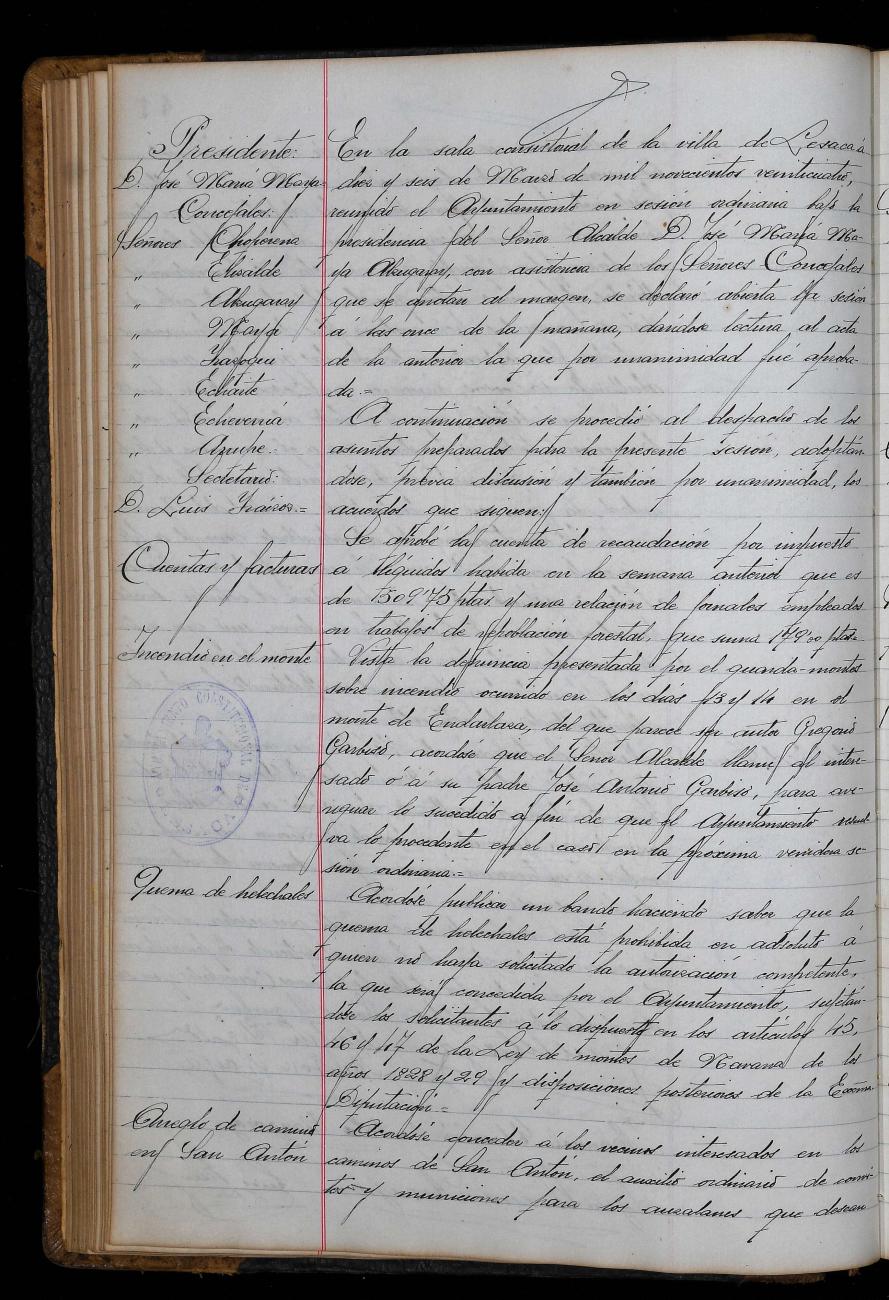 Presidente:
D. José María Maya
Concejales:
Señores Choperena
„ Elizalde
„ Alzugaray
„ Maya
„ Irazoqui
„ Echarte
„ Echeverría
„ Azurpe.
Secretario:
D. Luis =
Cuentas y facturas
Incendio en el monte
Quema de helechales
Arreglo de camino
en San Antón
En la sala consistorial de la villa de Lesaca á
diez y seis de Marzo de mil novecientos veinticuatro,
reunido el Ayuntamiento en sesión ordinaria bajo la
presidencia del Señor Alcalde D. José María Ma-
ya Alzugaray, con asistencia de los Señores Concejales
que se anotan al margen, se declaró abierta la sesión
á las once de la mañana, dandose lectura al acta
de la anterior la que por unanimidad fué aproba-
da.=
A continuación se procedió al despacho de los
asuntos preparados para la presente sesión, adoptán-
dose, previa discusión y también por unanimidad, los
acuerdos que siguen:
Se aprobó la cuenta de recaudación por impuesto
a líquidos habida en la semana anterior que es
de 1509'75 ptas y una relación de jornales empleados
en trabajos de repoblación forestal, que suma 179'00 ptas=
Vista la denuncia presentada por el guarda-montes
sobre incendio ocurrido en los dias 13 y 14 en el
monte de Endarlaza, del que parece ser autor Gregorio
Garbiso, acordose que el Señor Alcalde llame al intere-
sado o á su padre José Antonio Garbiso, para ave-
riguar lo sucedido a fin de que el Ayuntamiento resuel-
va lo procedente en el caso en la próxima venidera se-
sión ordinaria.=
Acordóse publicar un bando haciendo saber que la
quema de helechales está prohibida en adsoluto á
quien no haya solicitado la autorización competente,
la que será concedida por el Ayuntamiento, sujetán-
dose los solicitantes á lo dispuesto en los artículos 45,
46 y 47 de la Ley de montes de Navarra de los
años 1828 y 29 y disposiciones posteriores de la Excma.
Diputación.=
Acordóse conceder á los vecinos interesados en los
caminos de San Antón, el auxilio ordinario de comi-
tes y municiones para los auzalanes que desean